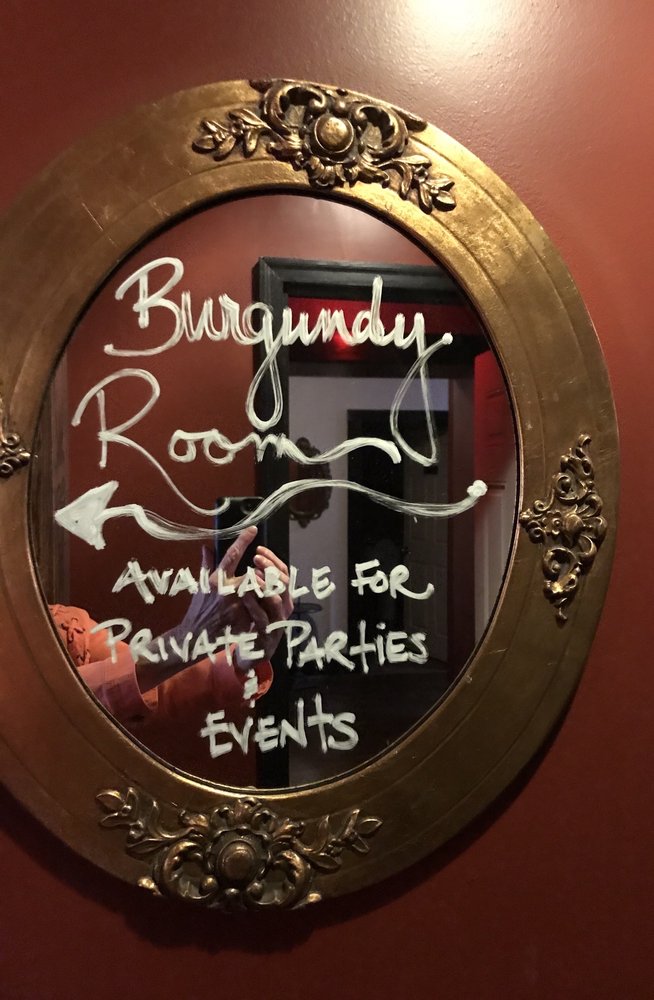 Burgundy
Room
AVAILABLE FOR
PRIVATE PARTIES
&
EVENTS